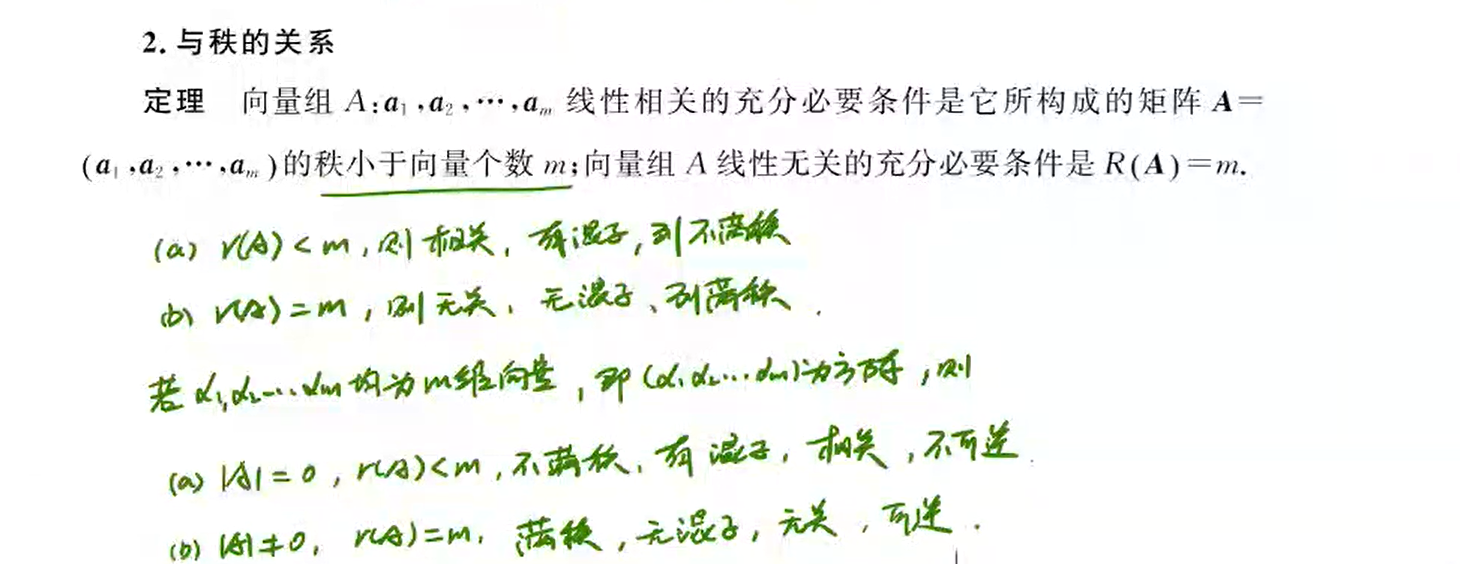 2. 与秩的关系
定理 向量组 A:a₁,a₂,⋯,aₘ 线性相关的充分必要条件是它所构成的矩阵 A=
(a₁,a₂,⋯,aₘ)的秩小于向量个数 m;向量组 A 线性无关的充分必要条件是 R(A)=m.
(a) r(A)<m,则相关,有混子,列不满秩
(b) r(A)=m,则无关,无混子、列满秩.
若 α₁,α₂…αₘ 均为m维向量,即(α₁α₂⋯αₘ)为方阵,则
(a) |A|=0,r(A)<m,不满秩、有混子,相关,不可逆.
(b) |A|≠0,r(A)=m,满秩,无混子,无关,可逆.